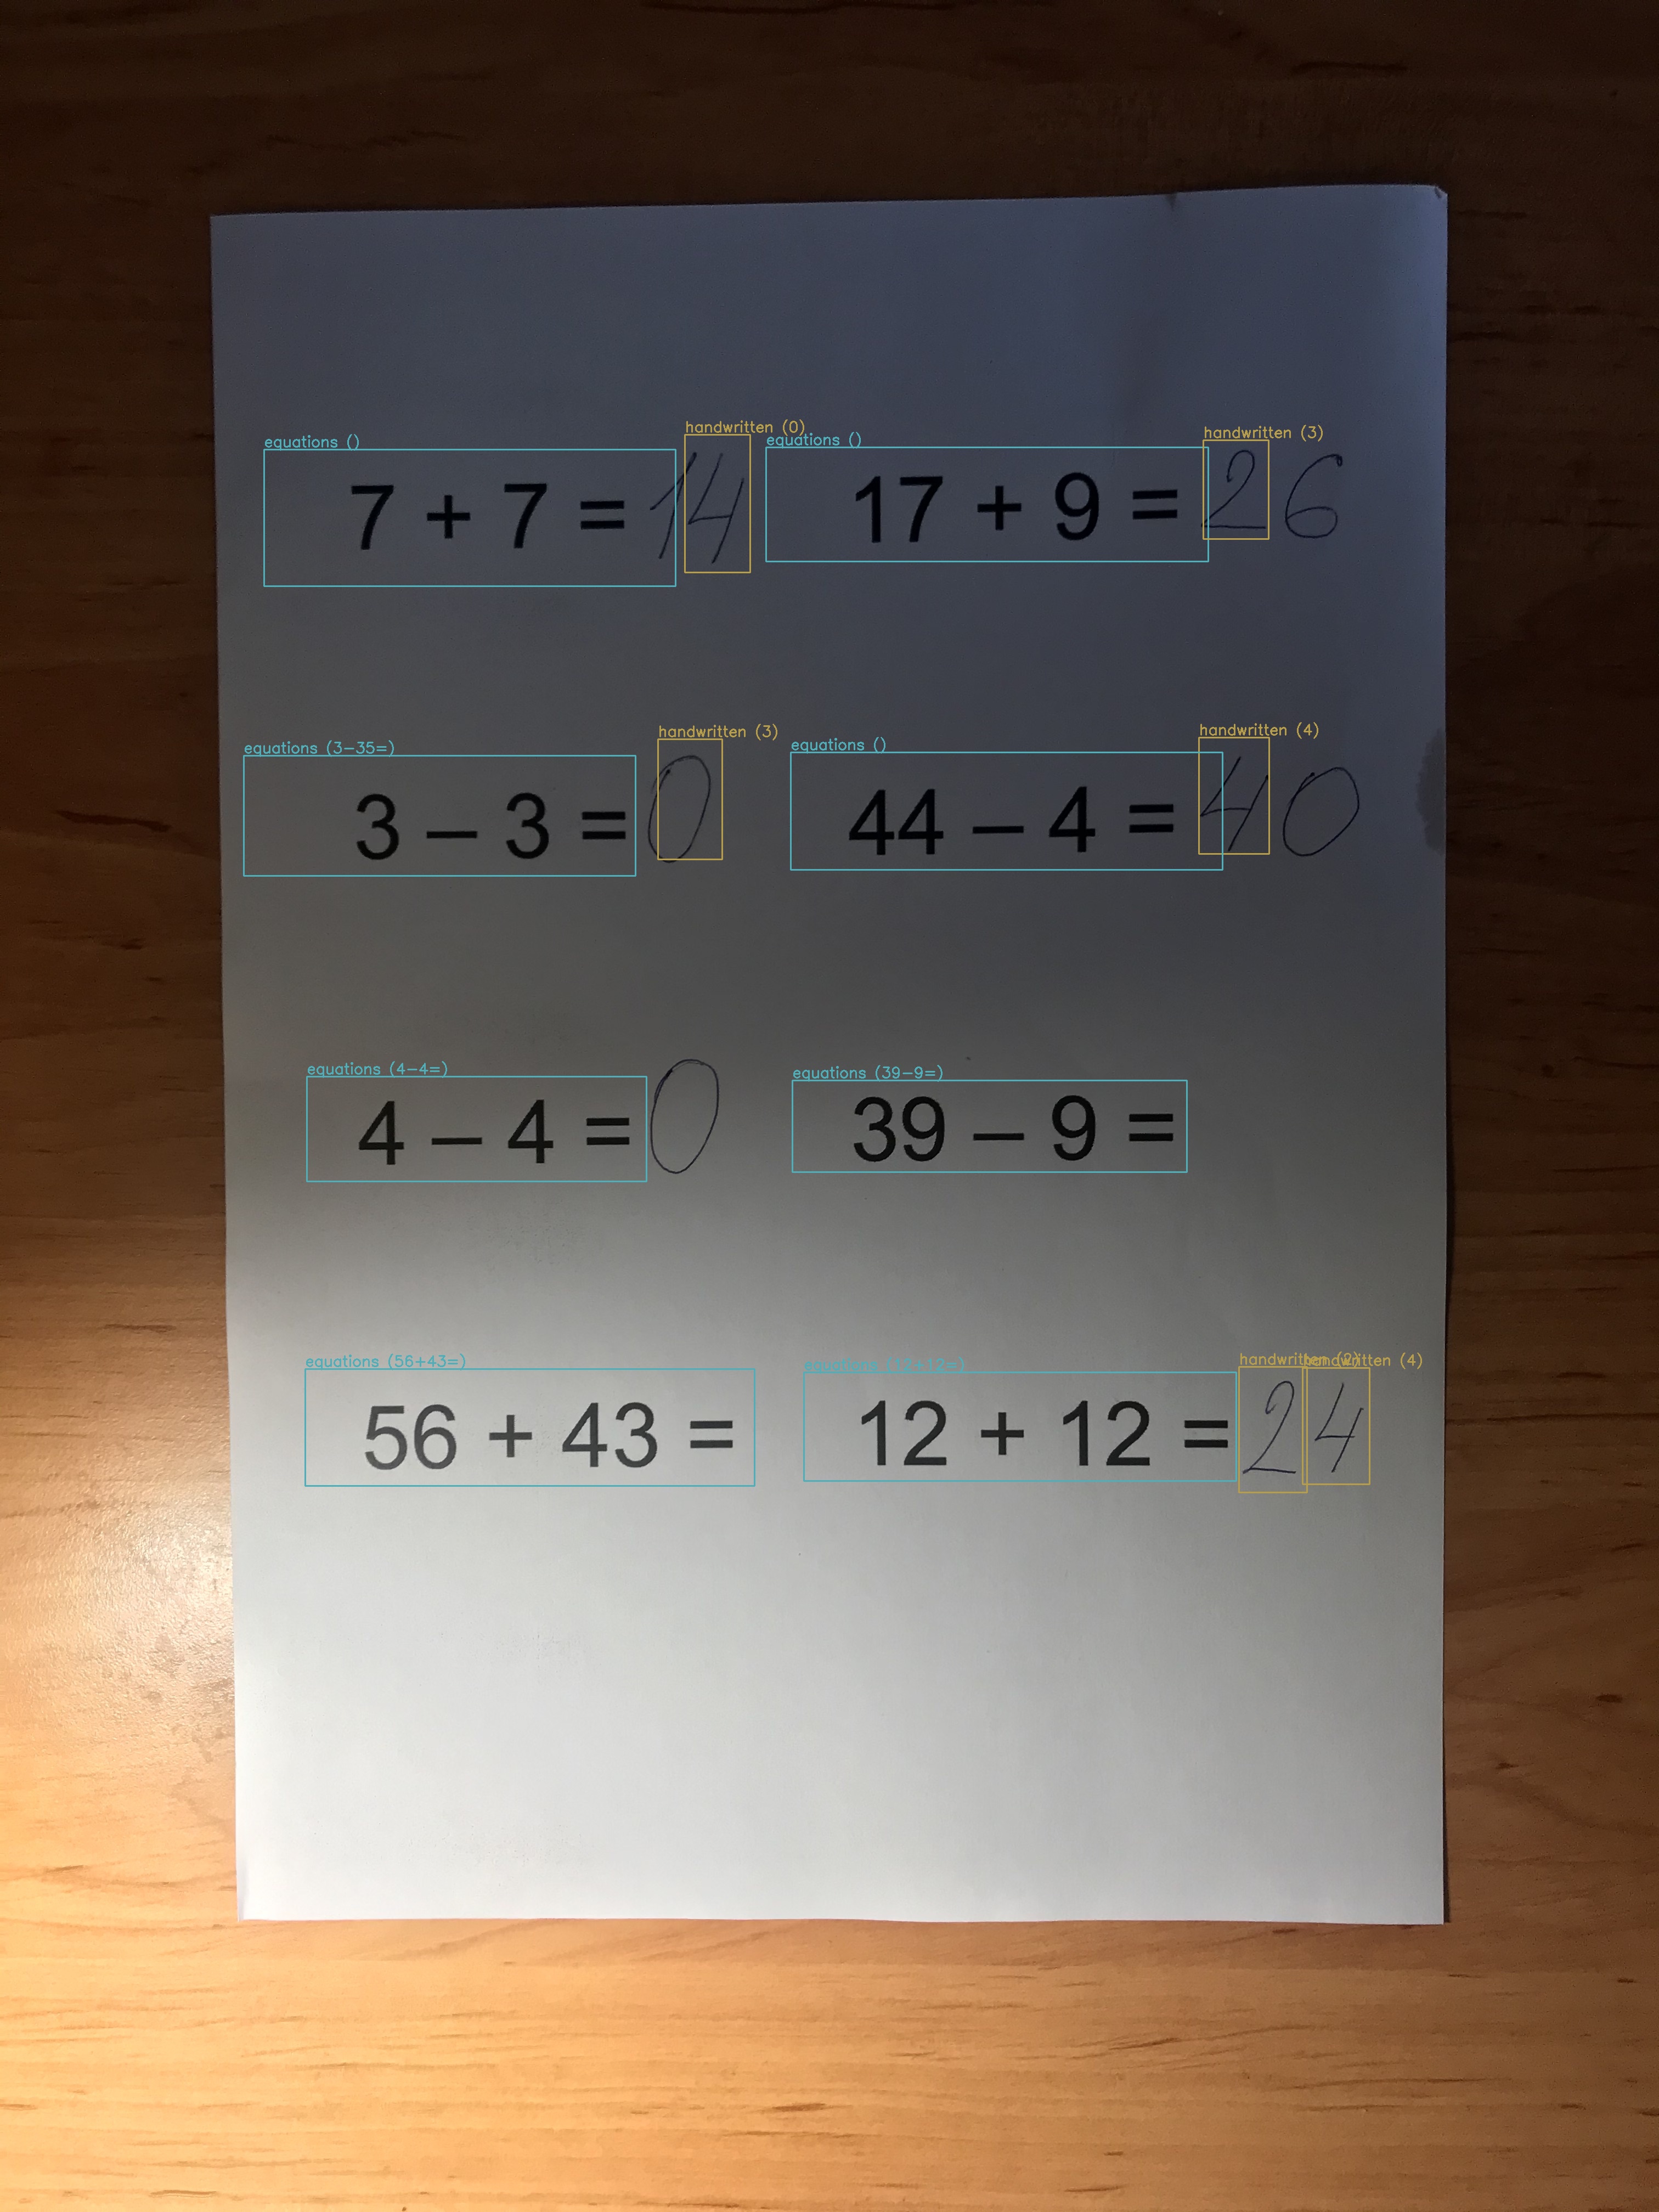 equations () handwritten (0) equations () handwritten (3)
7 + 7 = 14 17 + 9 = 26
equations (3-35=) handwritten (3) equations () handwritten (4)
3 – 3 = 0 44 – 4 = 40
equations (4-4=) equations (39-9=)
4 – 4 = 0 39 – 9 =
equations (56+43=) equations (12+12=) handwritten (2) handwritten (4)
56 + 43 = 12 + 12 = 24